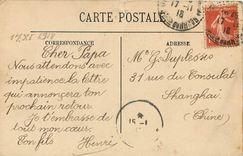 CARTE POSTALE
17.XI 1918
CORRESPONDANCE
Cher Papa
Nous attendons avec
impatience la lettre
qui annoncera ton
prochain retour.
Je t'embrasse de
tout mon cœur.
Ton fils
Henri
ADRESSE
Mr G. Duplessis
31 rue du Consulat
Shanghai
(Chine)
17-11
18
15-1